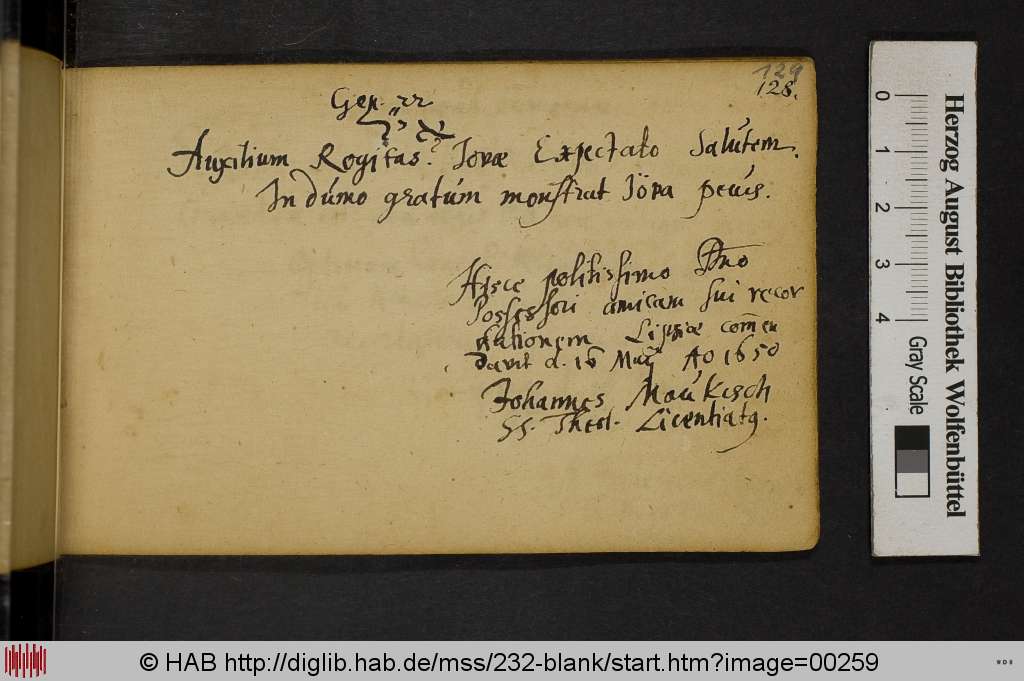 129
128.
Gen. 22
Auxilium Rogitas? Jovæ Expectato Salutem.
In dumo gratum monstrat Jova pecus.
Hisce politissimo Dno
Possessori amicam sui recor
dationem Lipsiæ comen
davit d. 16 Maij Ao 1650
Johannes Maukisch
SS. Theol. Licentiatq.
0
1
2
3
4
Gray Scale
Herzog August Bibliothek Wolfenbüttel
© HAB http://diglib.hab.de/mss/232-blank/start.htm?image=00259